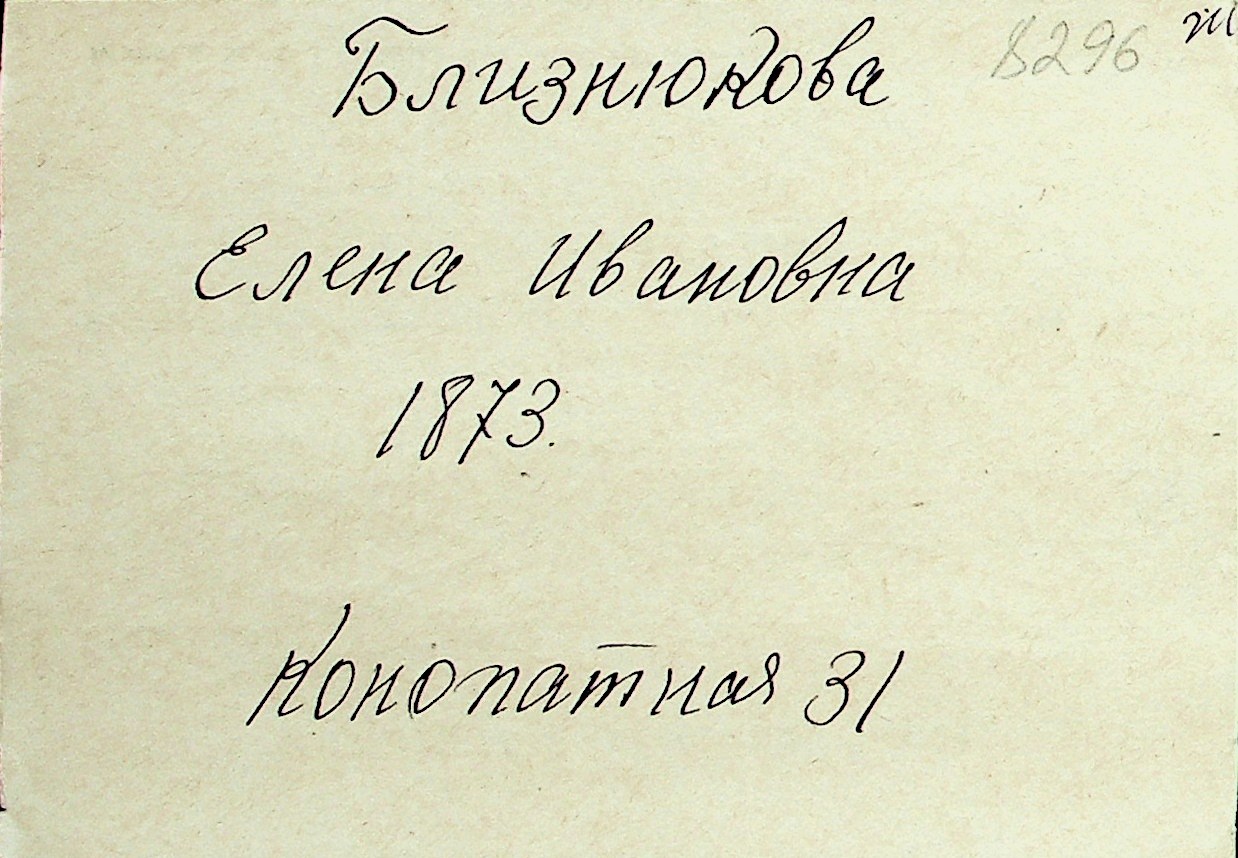 Близнюкова
8296
Елена Ивановна
1873.
Конопатная 31